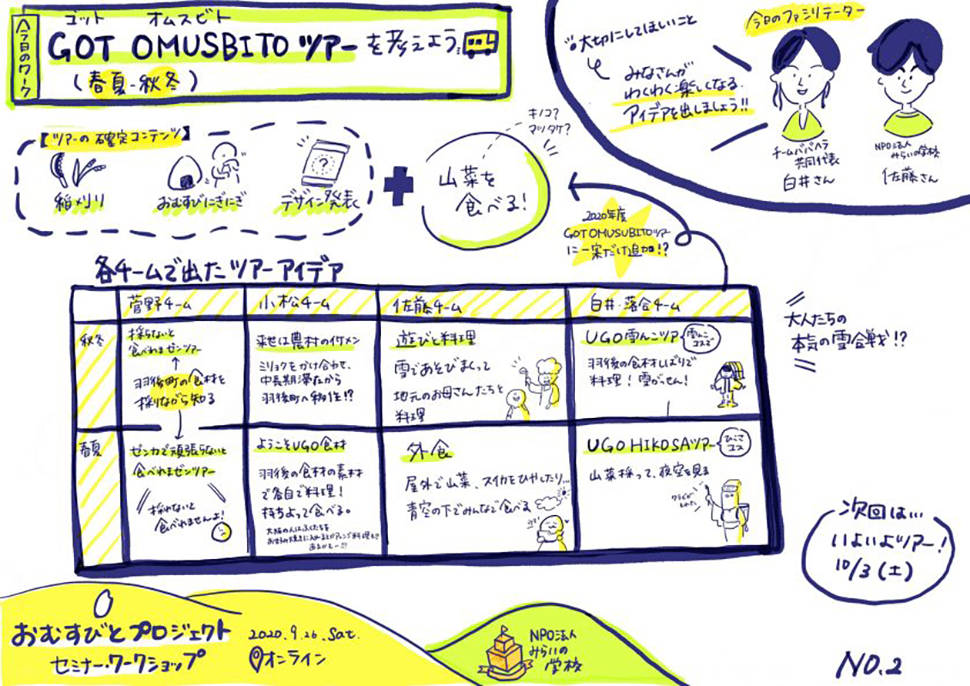 今日のワーク
ゴット オムスビト
GOT OMUSBITO ツアーを考えよう
(春夏-秋冬)
大切にしてほしいこと
みなさんが
わくわく楽しくなる
アイデアを出しましょう!!
今日のファシリテーター
チームババヘラ
共同代表
白井さん
NPO法人
みらいの学校
佐藤さん
【ツアーの確定コンテンツ】
稲刈り
おむすびにぎにぎ
デザイン発表
+
キノコ?
マツタケ?
山菜を
食べる!
2020年度
GOT OMUSUBITOツアー
に一案だけ追加!?
各チームで出たツアーアイデア
菅野チーム
小松チーム
佐藤チーム
白井・落合チーム
秋冬
採らないと
食べれまゼンツアー
羽後町の食材を
採りながら知る
来世は農村のイケメン
ミリョクをかけ合わせて、
中長期滞在から
羽後町へ移住!?
遊びと料理
雪であそびまくって
地元のお母さんたちと
料理
UGO雪んこツアー
雪んこコスで
羽後の食材しばりで
料理!雪がっせん!
春夏
ゼンカで頑張らないと
食べれまゼンツアー
採れないと
食べれませんよ!
ようこそUGO食材
羽後の食材の素材
で各自で料理!
持ちよって食べる。
外食
屋外で山菜、スイカをひやしたり…
青空の下でみんなで食べる
UGO HIKOSAツアー
ひこさコス
山菜採って、夜空を見る
大人たちの
本気の雪合戦!?
次回は…
いよいよツアー!
10/3(土)
おむすびとプロジェクト
セミナー・ワークショップ
2020.9.26.Sat.
オンライン
NPO法人
みらいの
学校
NO.2